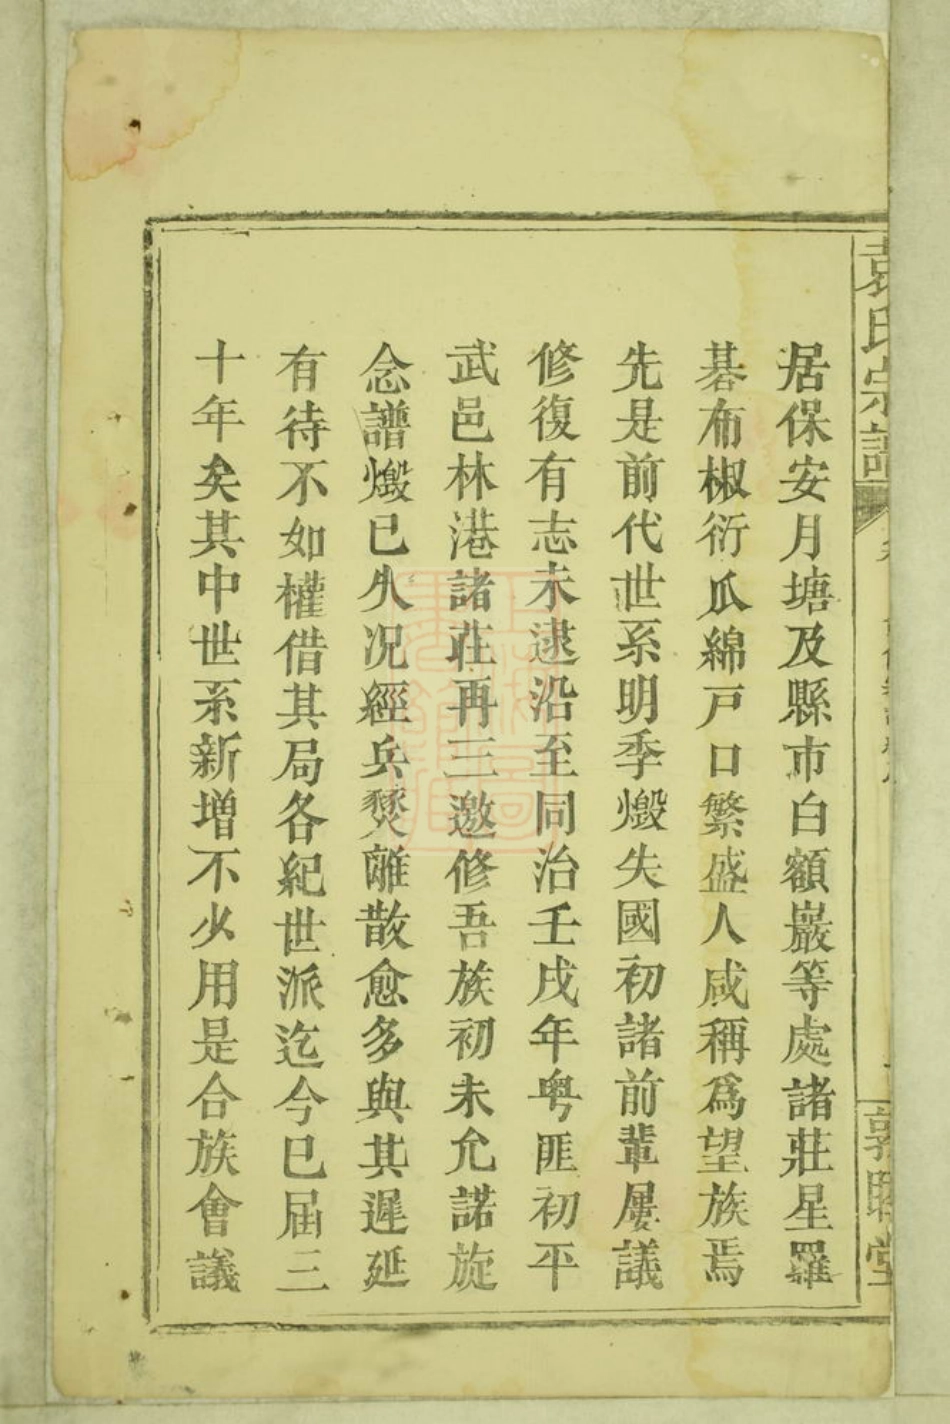 袁氏宗譜
敦睦堂
居保安月塘及縣市白額巖等處諸莊星羅
碁布椒衍瓜綿戸口繁盛人咸稱爲望族焉
先是前代世系明季燬失國初諸前輩屢議
修復有志未逮沿至同治壬戌年粤匪初平
武邑林港諸莊再三邀修吾族初未允諾旋
念譜燬已久况經兵燹離散愈多與其遲延
有待不如權借其局各紀世派迄今已屆三
十年矣其中世系新增不少用是合族會議